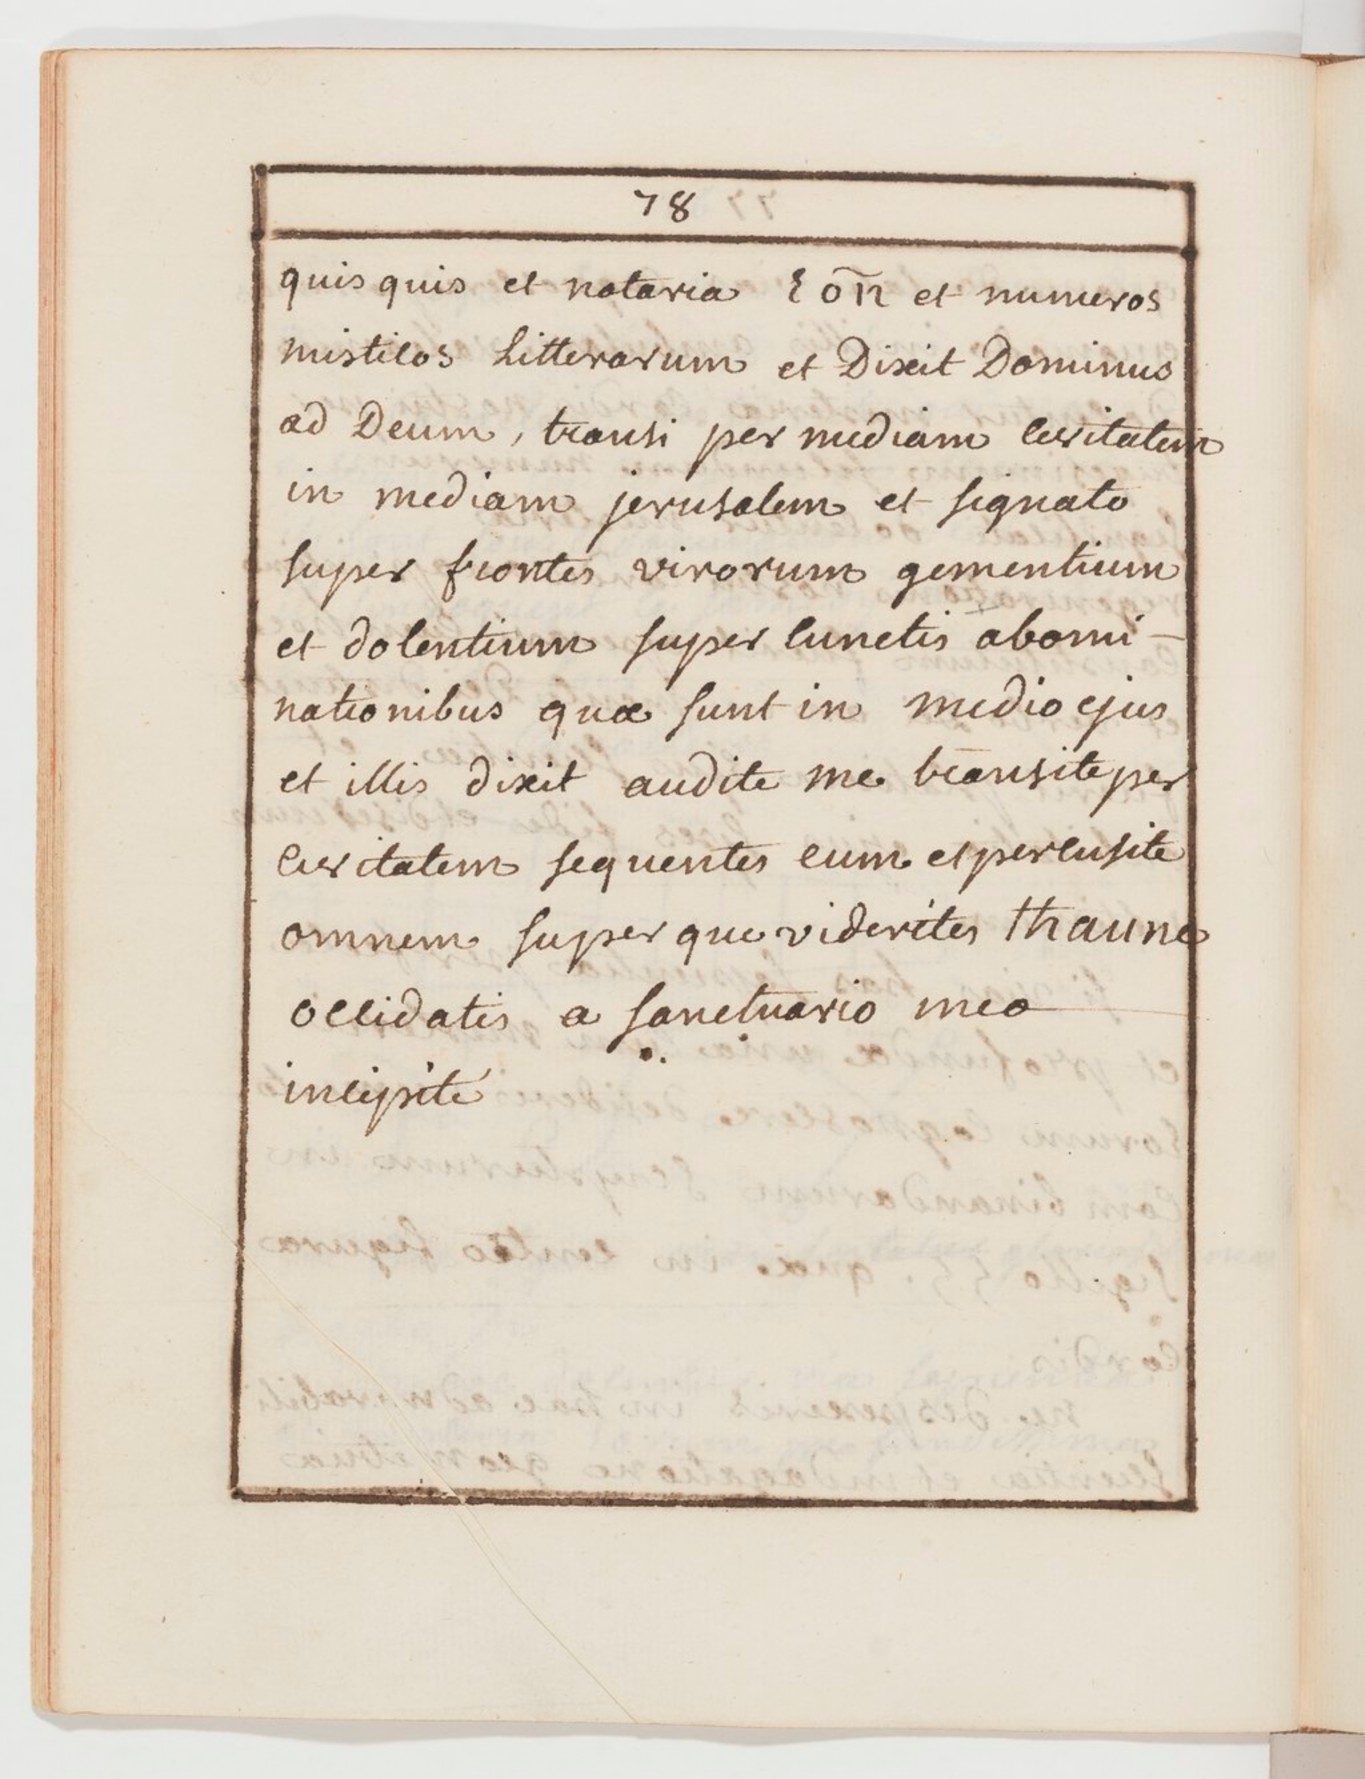 78
quis quis et notaria ξōn et numeros
misticos Litterarum et Dixit Dominus
ad Deum, transi per mediam civitatem
in mediam jerusalem et signato
super frontes virorum gementium
et dolentium super cunctis abomi-
nationibus quæ sunt in medio ejus
et illis dixit audite me transite per
civitatem sequentes eum et percusite
omnem super que videritis thau ne
occidatis a sanctuario meo
incipite